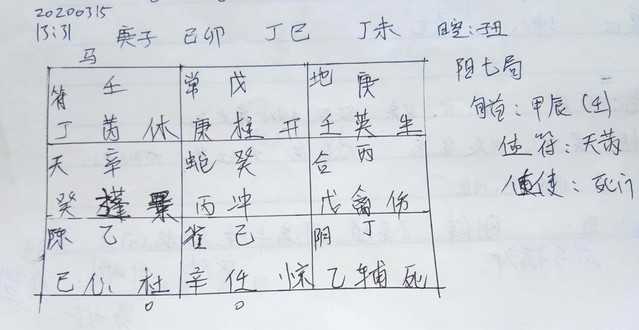 20200315
13:31 庚子 己卯 丁巳 丁未 日空:子丑
马
符 壬 常 戊 地 庚
丁 芮 休 庚 柱 开 壬 英 生
天 辛 蛇 癸 合 丙
癸 丙 冲 戊 禽 伤
陈 乙 雀 己 阴 丁
己 心 杜 辛 任 惊 乙 辅 死
阳七局
旬首:甲辰(壬)
值符:天芮
值使:死门